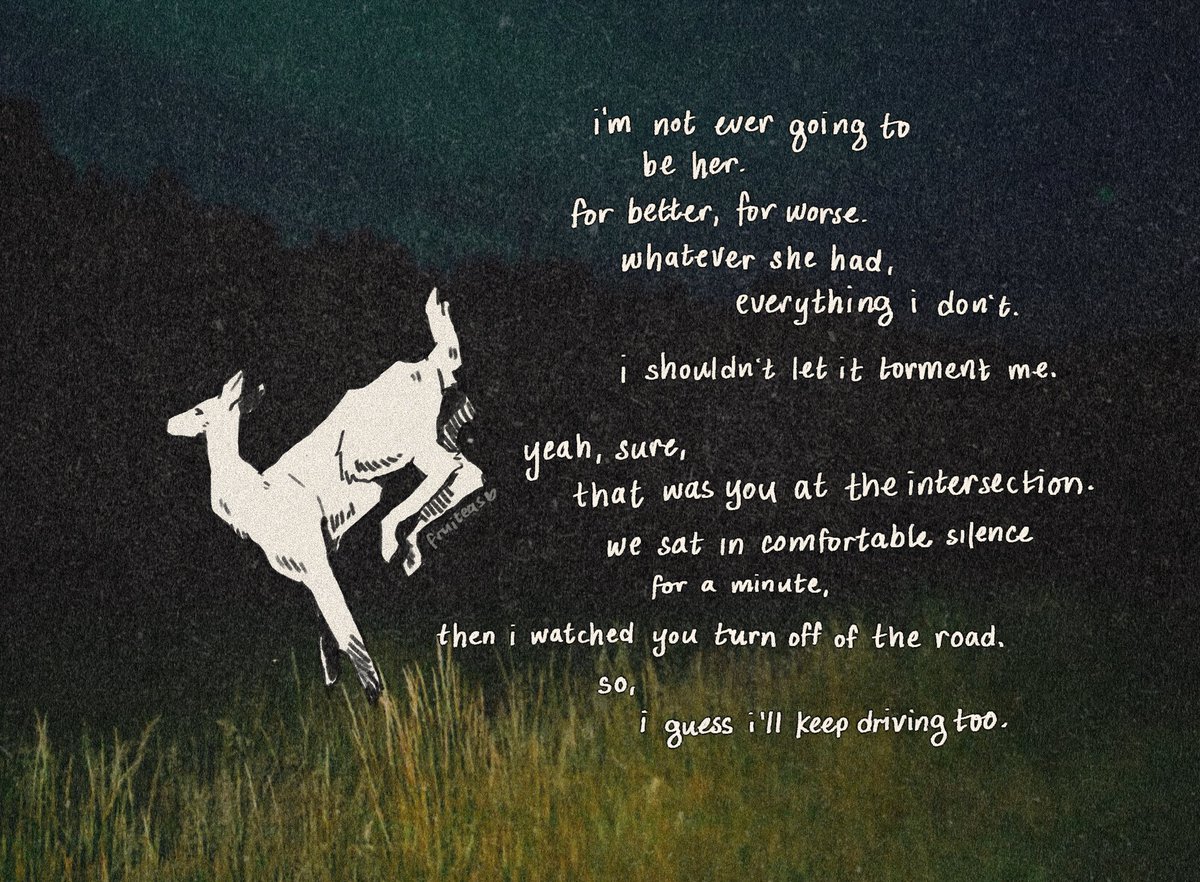 i'm not ever going to
be her.
for better, for worse.
whatever she had,
everything i don't.
i shouldn't let it torment me.
yeah, sure,
that was you at the intersection.
we sat in comfortable silence
for a minute,
then i watched you turn off of the road.
so,
i guess i'll keep driving too.
fruiteas